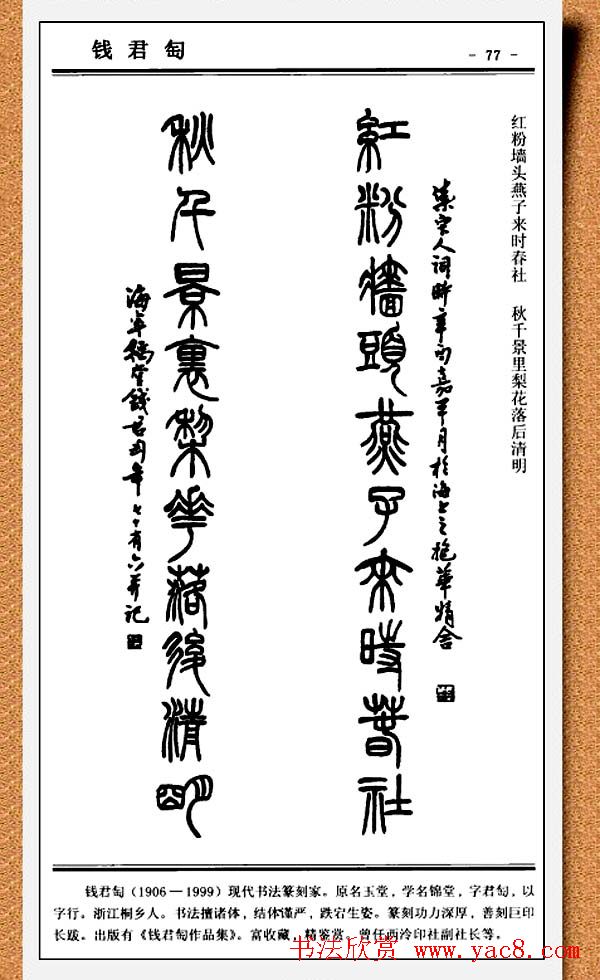 钱君匋
- 77 -
红粉墙头燕子来时春社 秋千景里梨花落后清明
紅粉牆頭燕子來時萅社
集宋人词时辛酉嘉平月於海上之抱華精舍
秋千景裏梨華落後清明
海平楼堂錢君匋年七十有六并记
钱君匋(1906—1999)现代书法篆刻家。原名玉堂,学名锦堂,字君匋,以
字行。浙江桐乡人。书法擅诸体,结体谨严,跌宕生姿。篆刻功力深厚,善刻巨印
长跋。出版有《钱君匋作品集》。富收藏,精鉴赏,曾任西泠印社副社长等。
书法欣赏 www.yac8.com